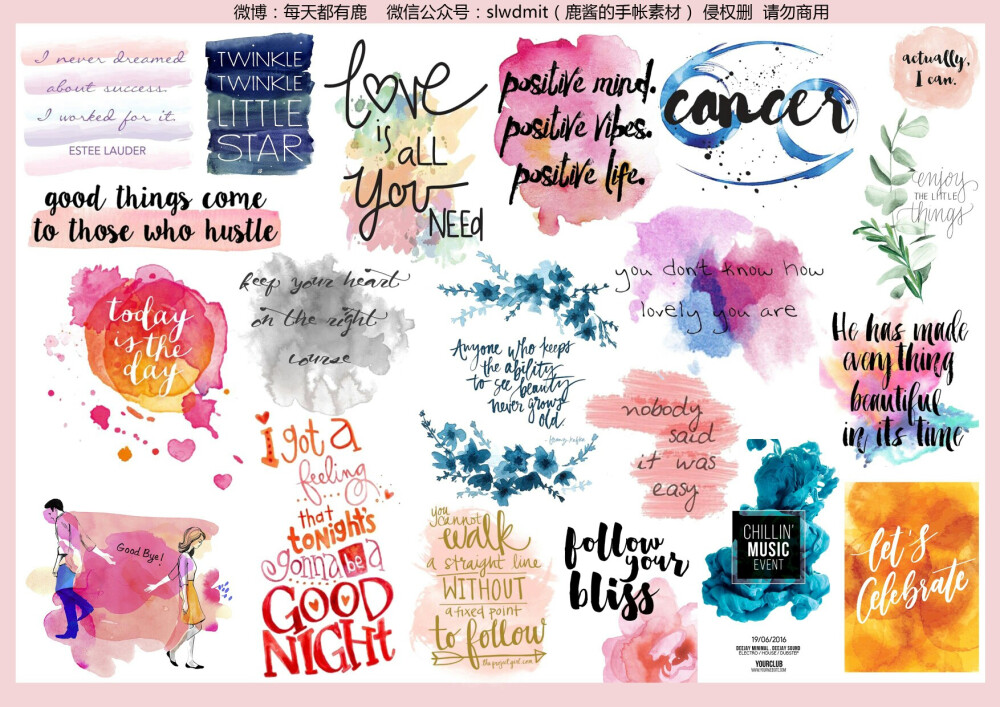 微博：每天都有鹿 微信公众号：slwdmit（鹿酱的手帐素材）侵权删 请勿商用
I never dreamed
about success.
I worked for it.
ESTEE LAUDER
TWINKLE
TWINKLE
LITTLE
STAR
love
is all
you
NEED
positive mind.
positive vibes.
positive life.
cancer
actually,
I can.
good things come
to those who hustle
enjoy
THE LITTLE
things
today
is the
day
keep your heart
on the right
course
Anyone who keeps
the ability
to see beauty
never grows
old.
you don't know how
lovely you are
He has made
everything
beautiful
in its time
i got a
feeling
that
toNight's
gonna be a
GOOD
NIGHT
nobody
said
it was
easy
Good Bye!
you
cannot
walk
a straight line
WITHOUT
a fixed point
to follow
follow
your
bliss
CHILLIN'
MUSIC
EVENT
19/06/2016
DEEJAY MINIMAL . DEEJAY SOUND
ELECTRO / HOUSE / DUBSTEP
YOURCLUB
WWW.YOURWEBSITE.COM
let's
Celebrate